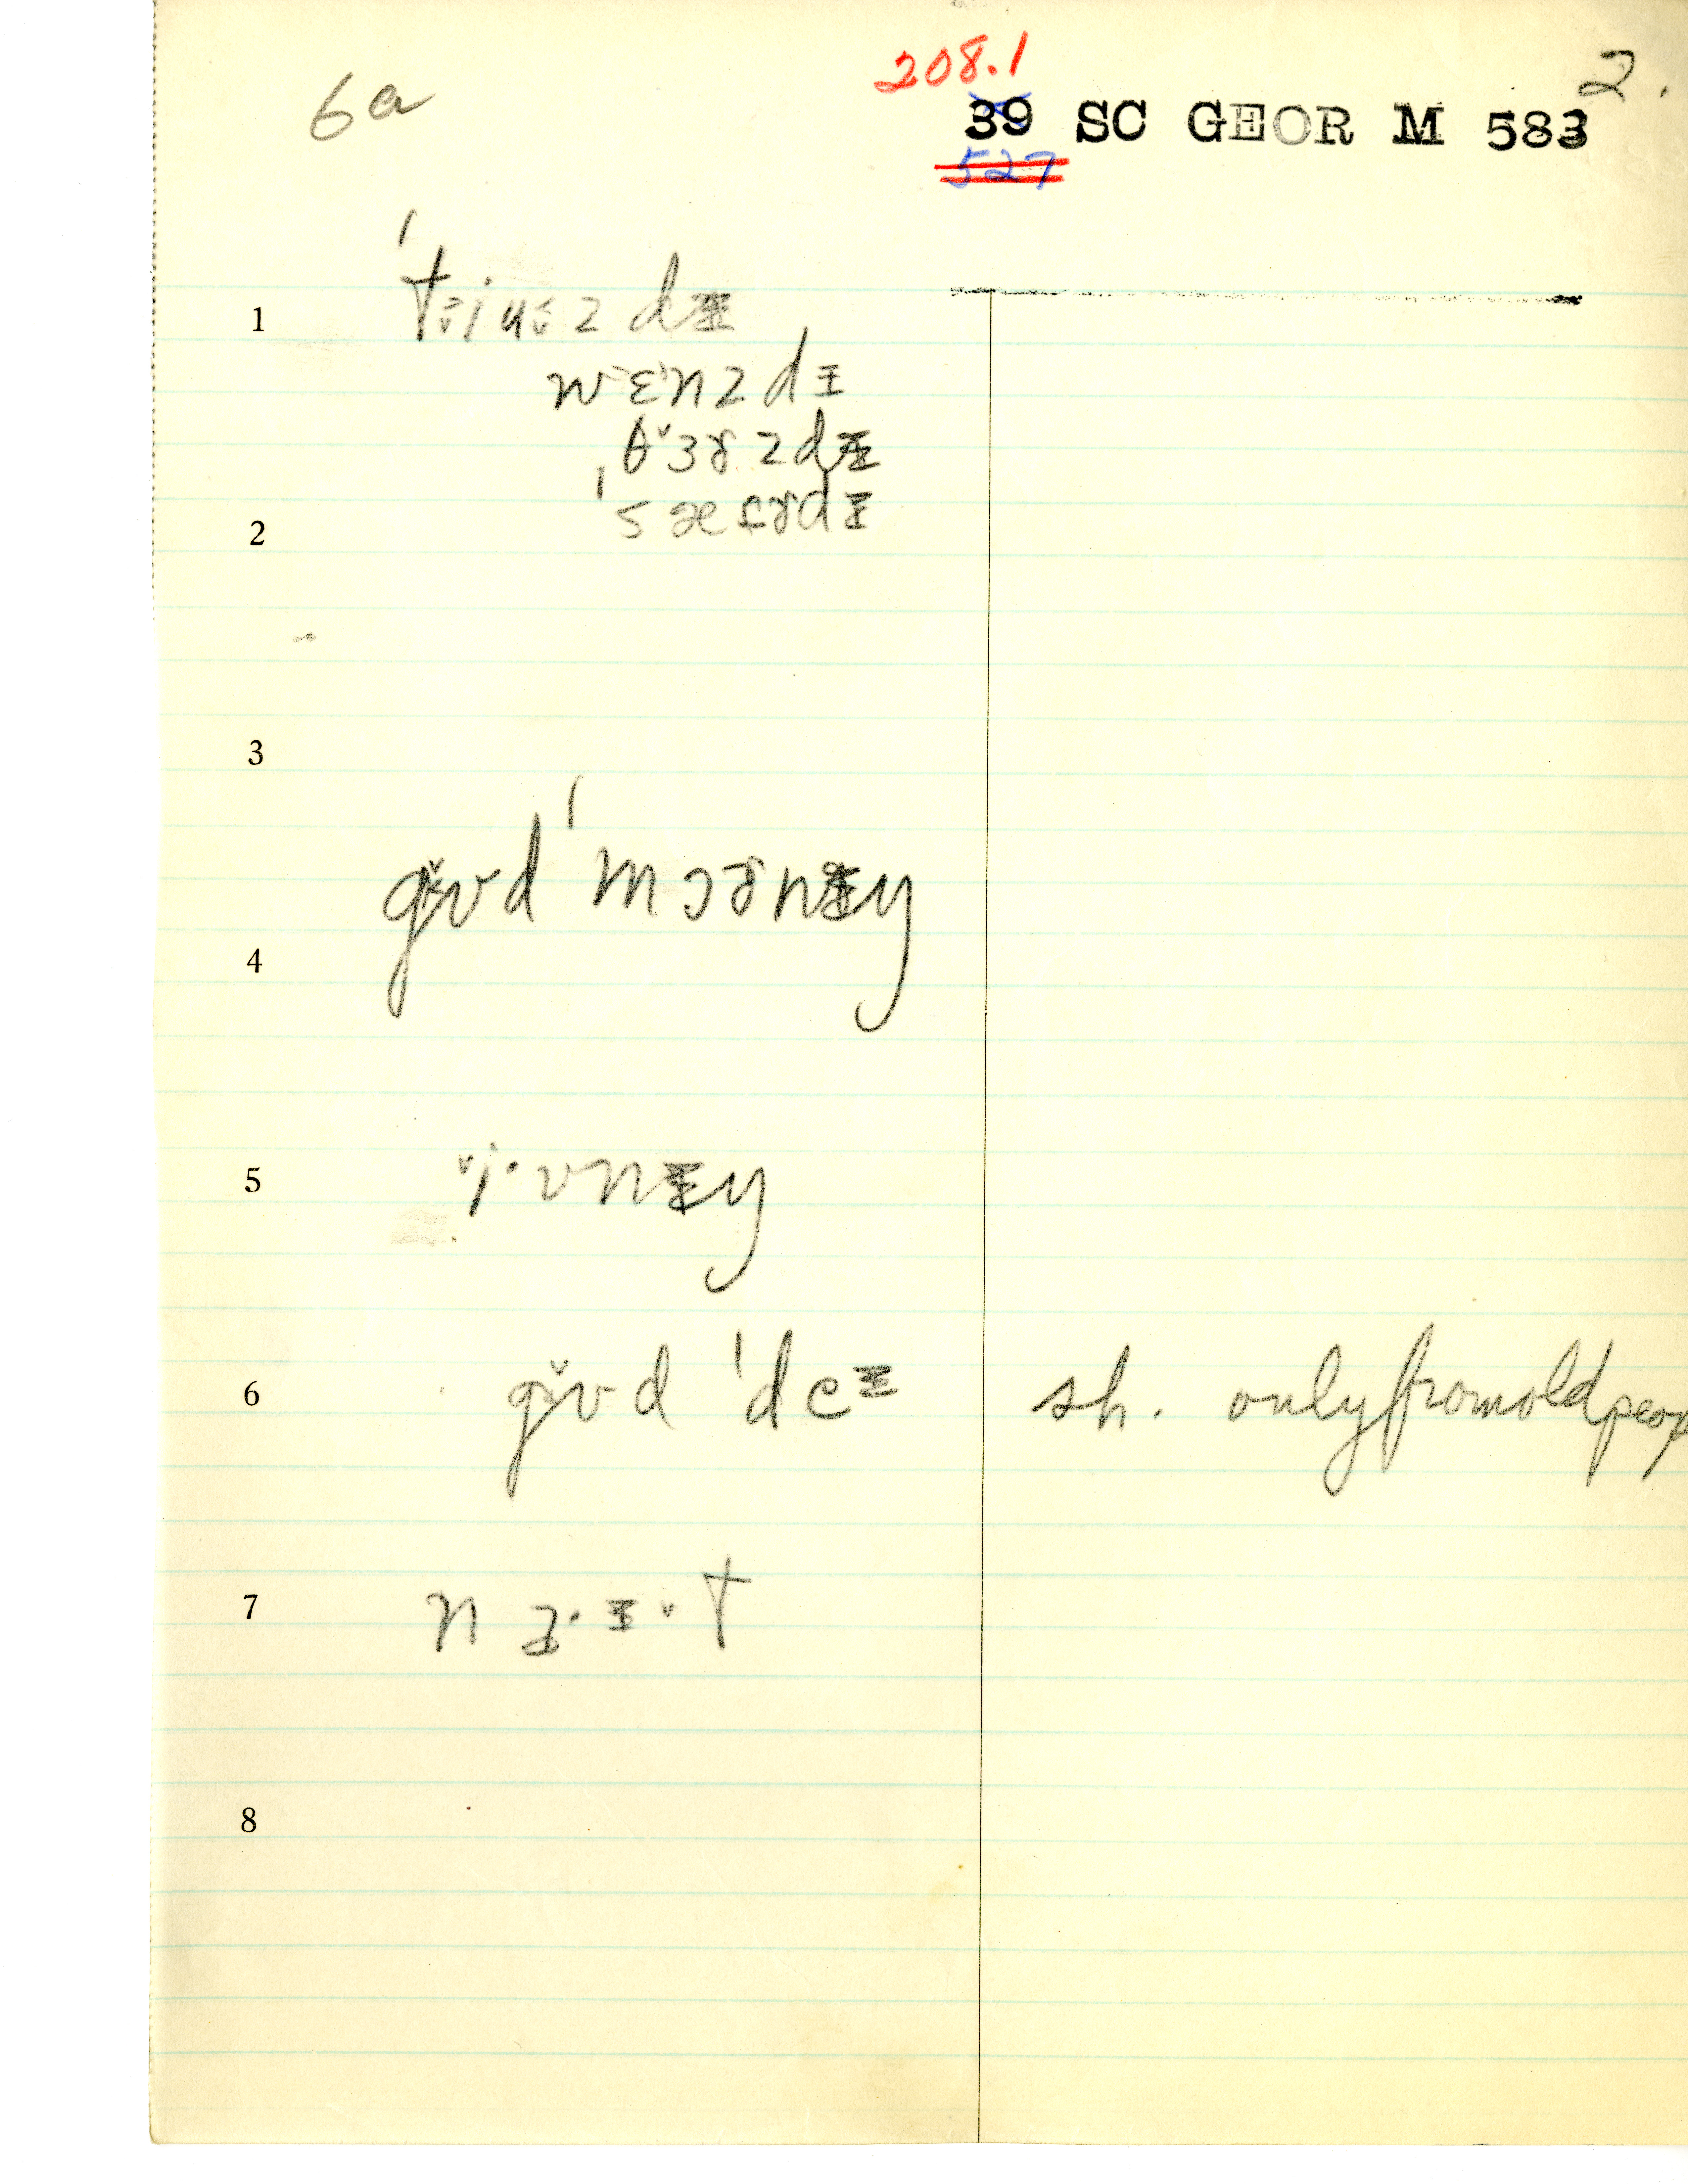 6a
208.1
2.
39 SC GEOR M 583
527
1 ˈtɨjuˑzdɪ
wɛnzdɪ
θɜɚzdɪ
2 ˈsæɚdɪ
3
gʊd ˈmɔɚnɪŋ
4
5 iˑvnɪŋ
6 gʊd ˈdeɪ sh. only from old peop
7 nɜˑɪˑt
8